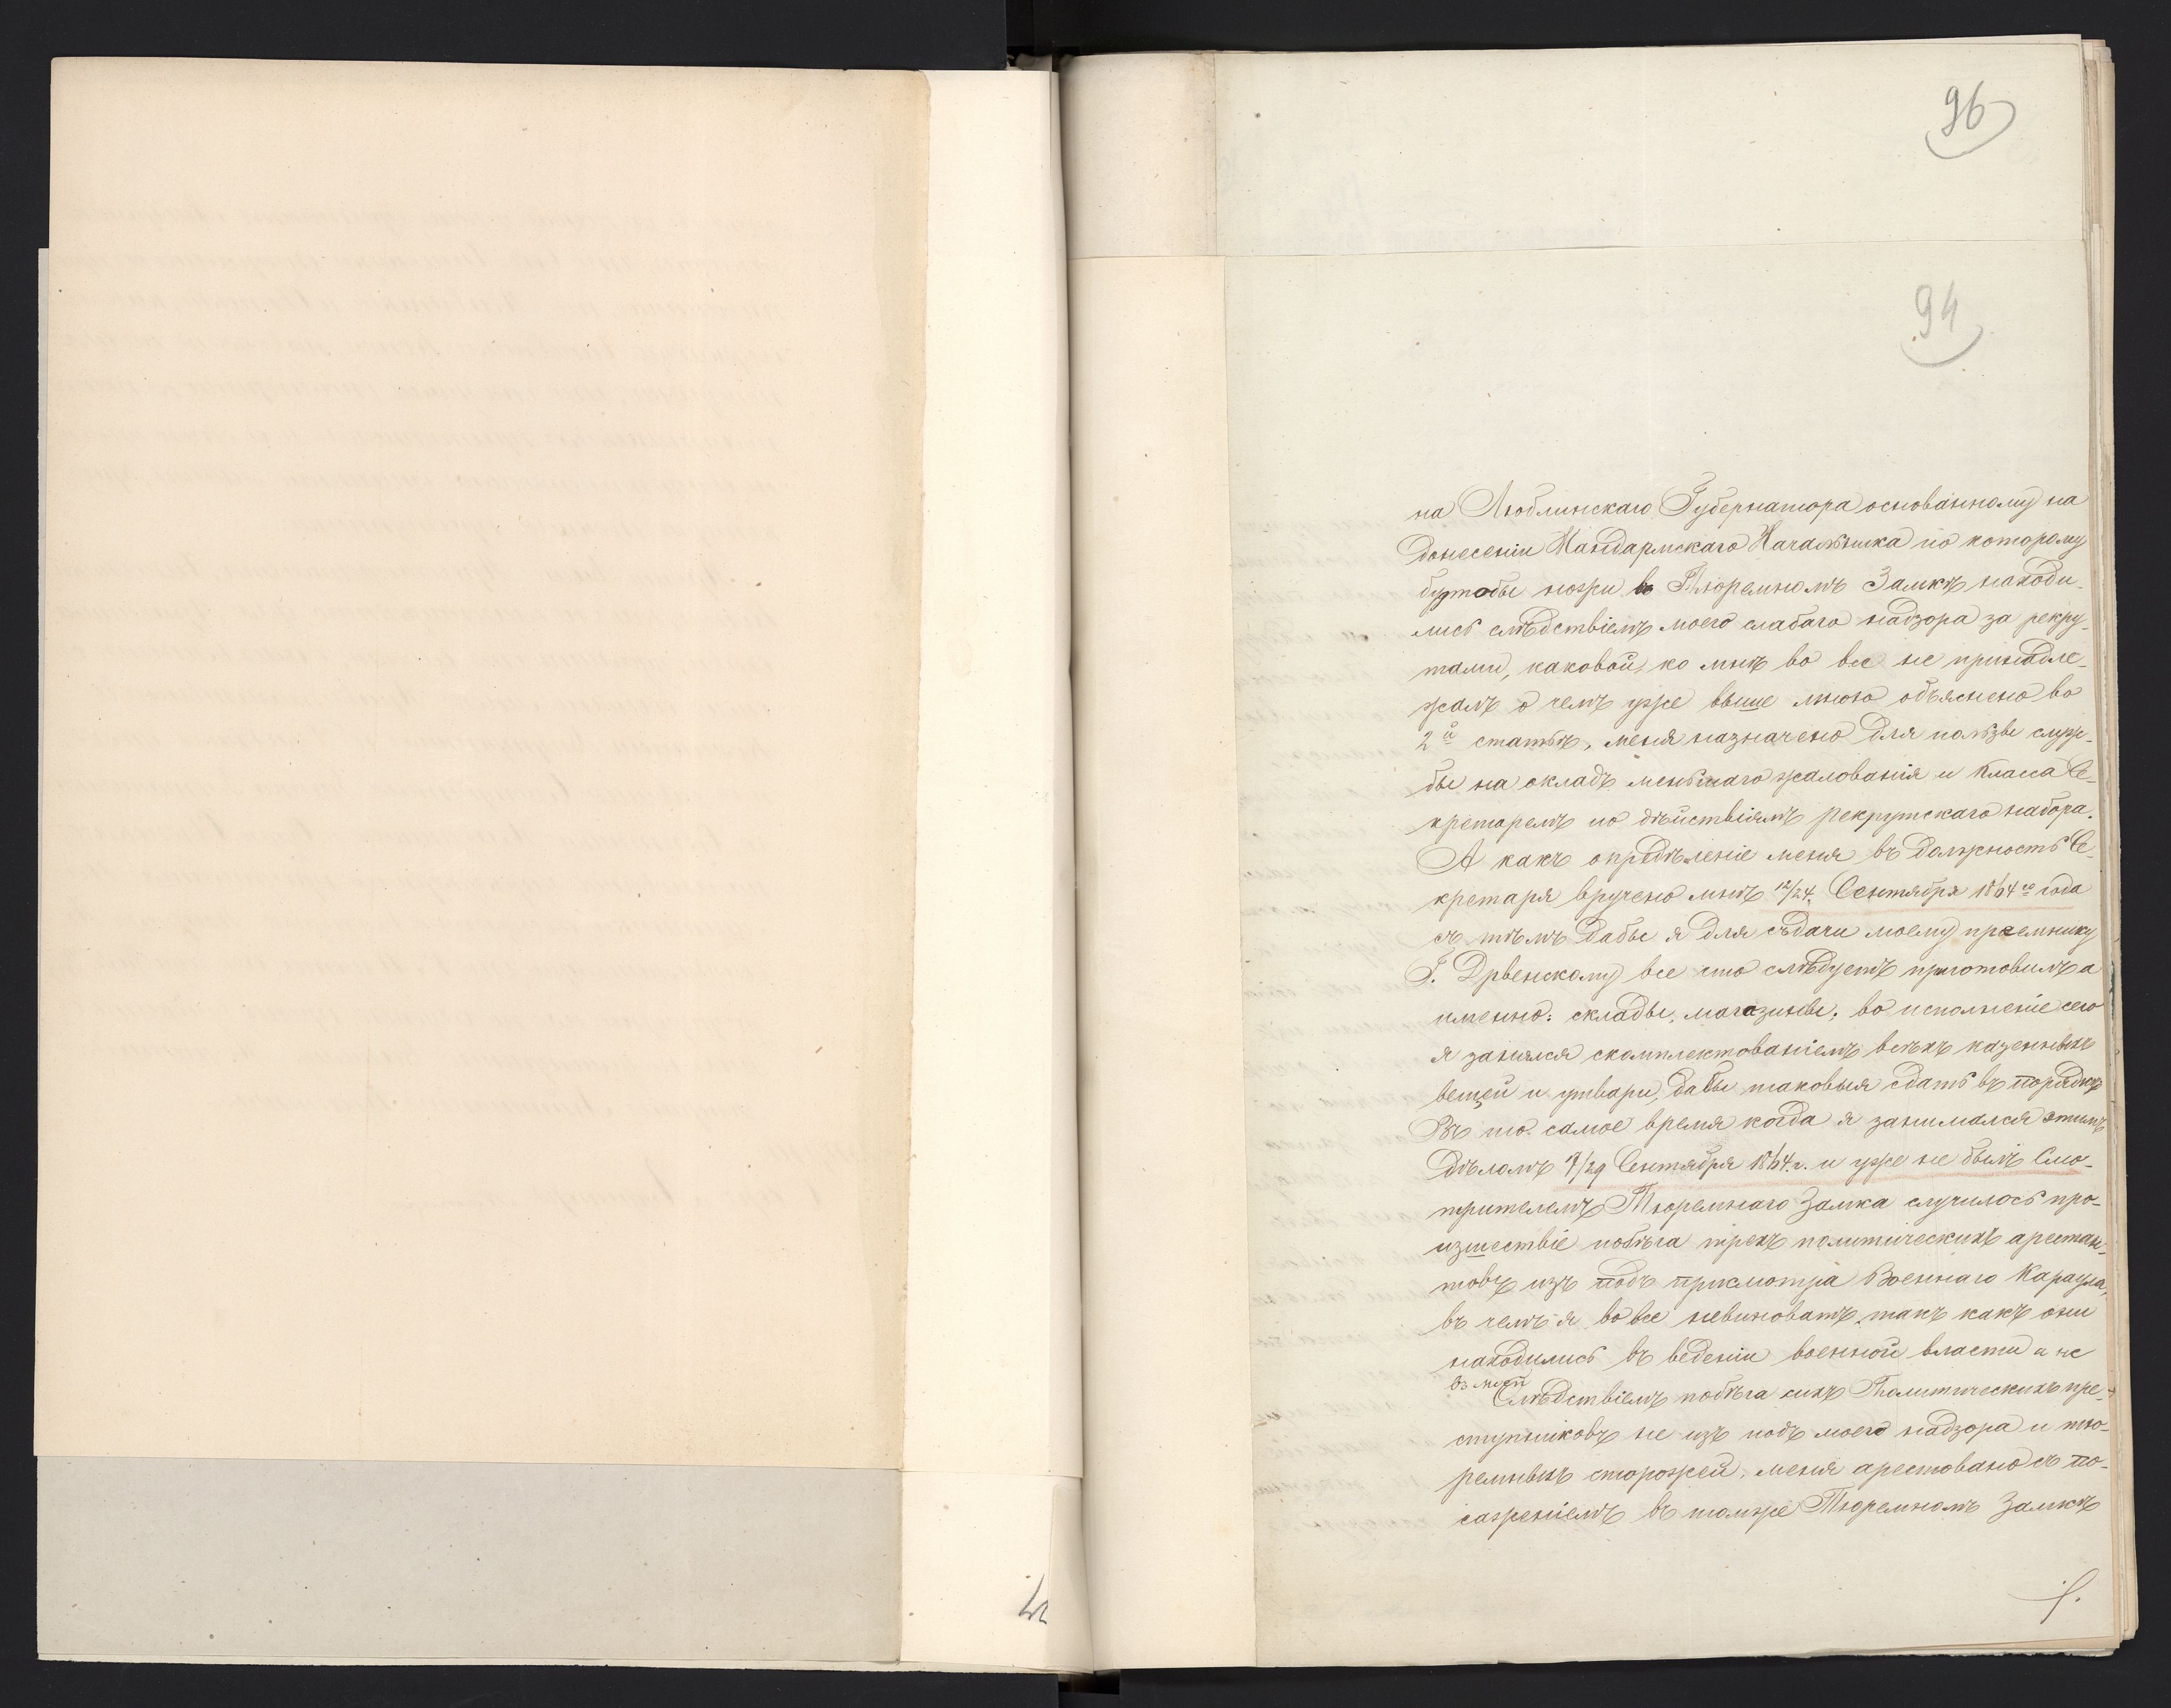 96
94
на Люблинскаго Губернатора основанному на
донесеніи Жандармскаго Начальника по которому
будтобы ножи въ Тюремномъ Замкѣ находи-
лись слѣдствіемъ моего слабаго надзора за рекру-
тами, каковой ко мнѣ во все не принадле-
жалъ о чемъ уже выше мною объяснено во
2й статьѣ, меня назначено для пользы служ-
бы на окладъ меньшаго жалованія и класса Се-
кретаремъ по дѣйствіямъ рекрутскаго набора.
А какъ опредѣленіе меня въ должность Се-
кретаря вручено мнѣ 12/24. Сентября 1864го года
съ тѣмъ дабы я для съдачи моему преемнику
Г. Држевскому все что слѣдуетъ приготовилъ а
именно: склады, магазины, во исполненіе сего
я занялся скомплектованіемъ всѣхъ казенныхъ
вещей и утвари, дабы таковыя сдать въ порядкѣ
Въ то самое время когда я занимался этимъ
дѣломъ 17/29 Сентября 1864.г. и уже не былъ Смо-
трителемъ Тюремнаго Замка случилось про-
изшествіе побѣга трехъ политическихъ арестан-
товъ изъ подъ присмотра Военнаго Караула,
въ чемъ я во все невиноватъ, такъ какъ они
находились въ веденіи военной власти а не
въ моей
Слѣдствіемъ побѣга сихъ Политическихъ пре-
ступниковъ не изъ подъ моего надзора и тю-
ремныхъ сторожей, меня арестовано съ по-
сазженіемъ въ томже Тюремномъ Замкѣ